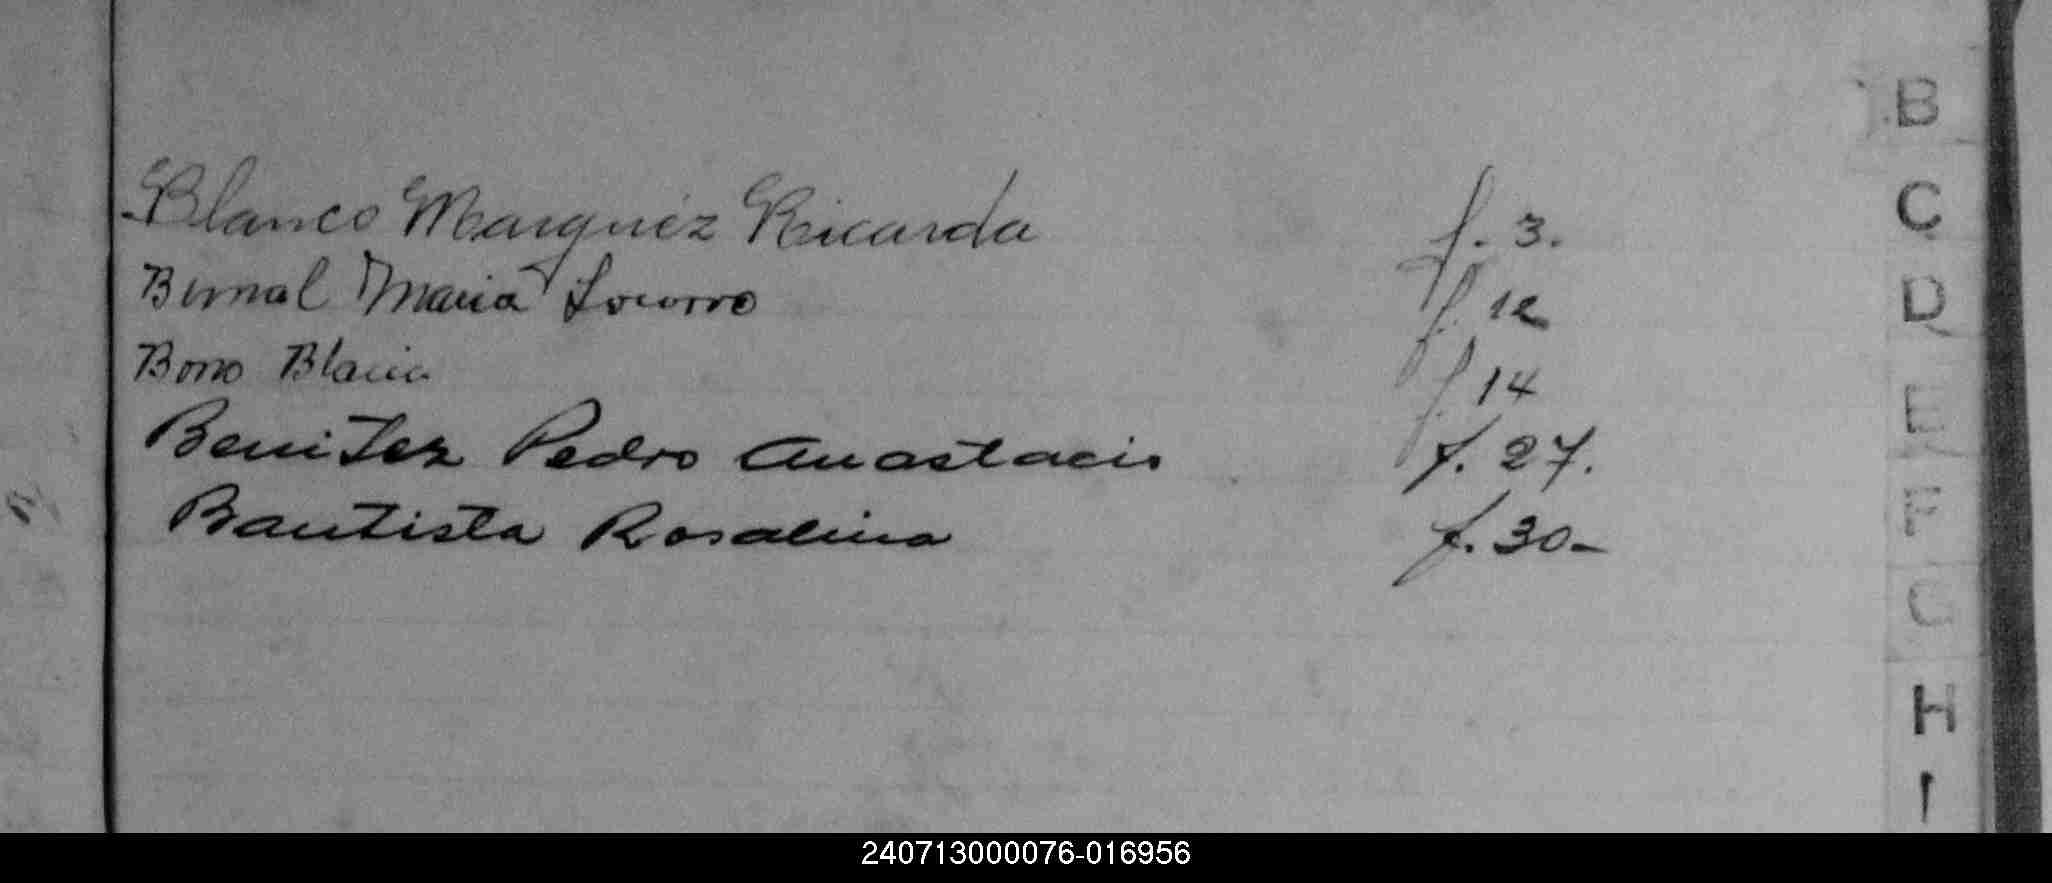 Blanco Marquéz Ricarda f. 3.
Bernal Maria Socorro f. 12
Bono f. 14
Benitez Pedro Anastacio f. 27.
Bautista Rosalina f. 30-
B
C
D
E
F
G
H
I
240713000076-016956